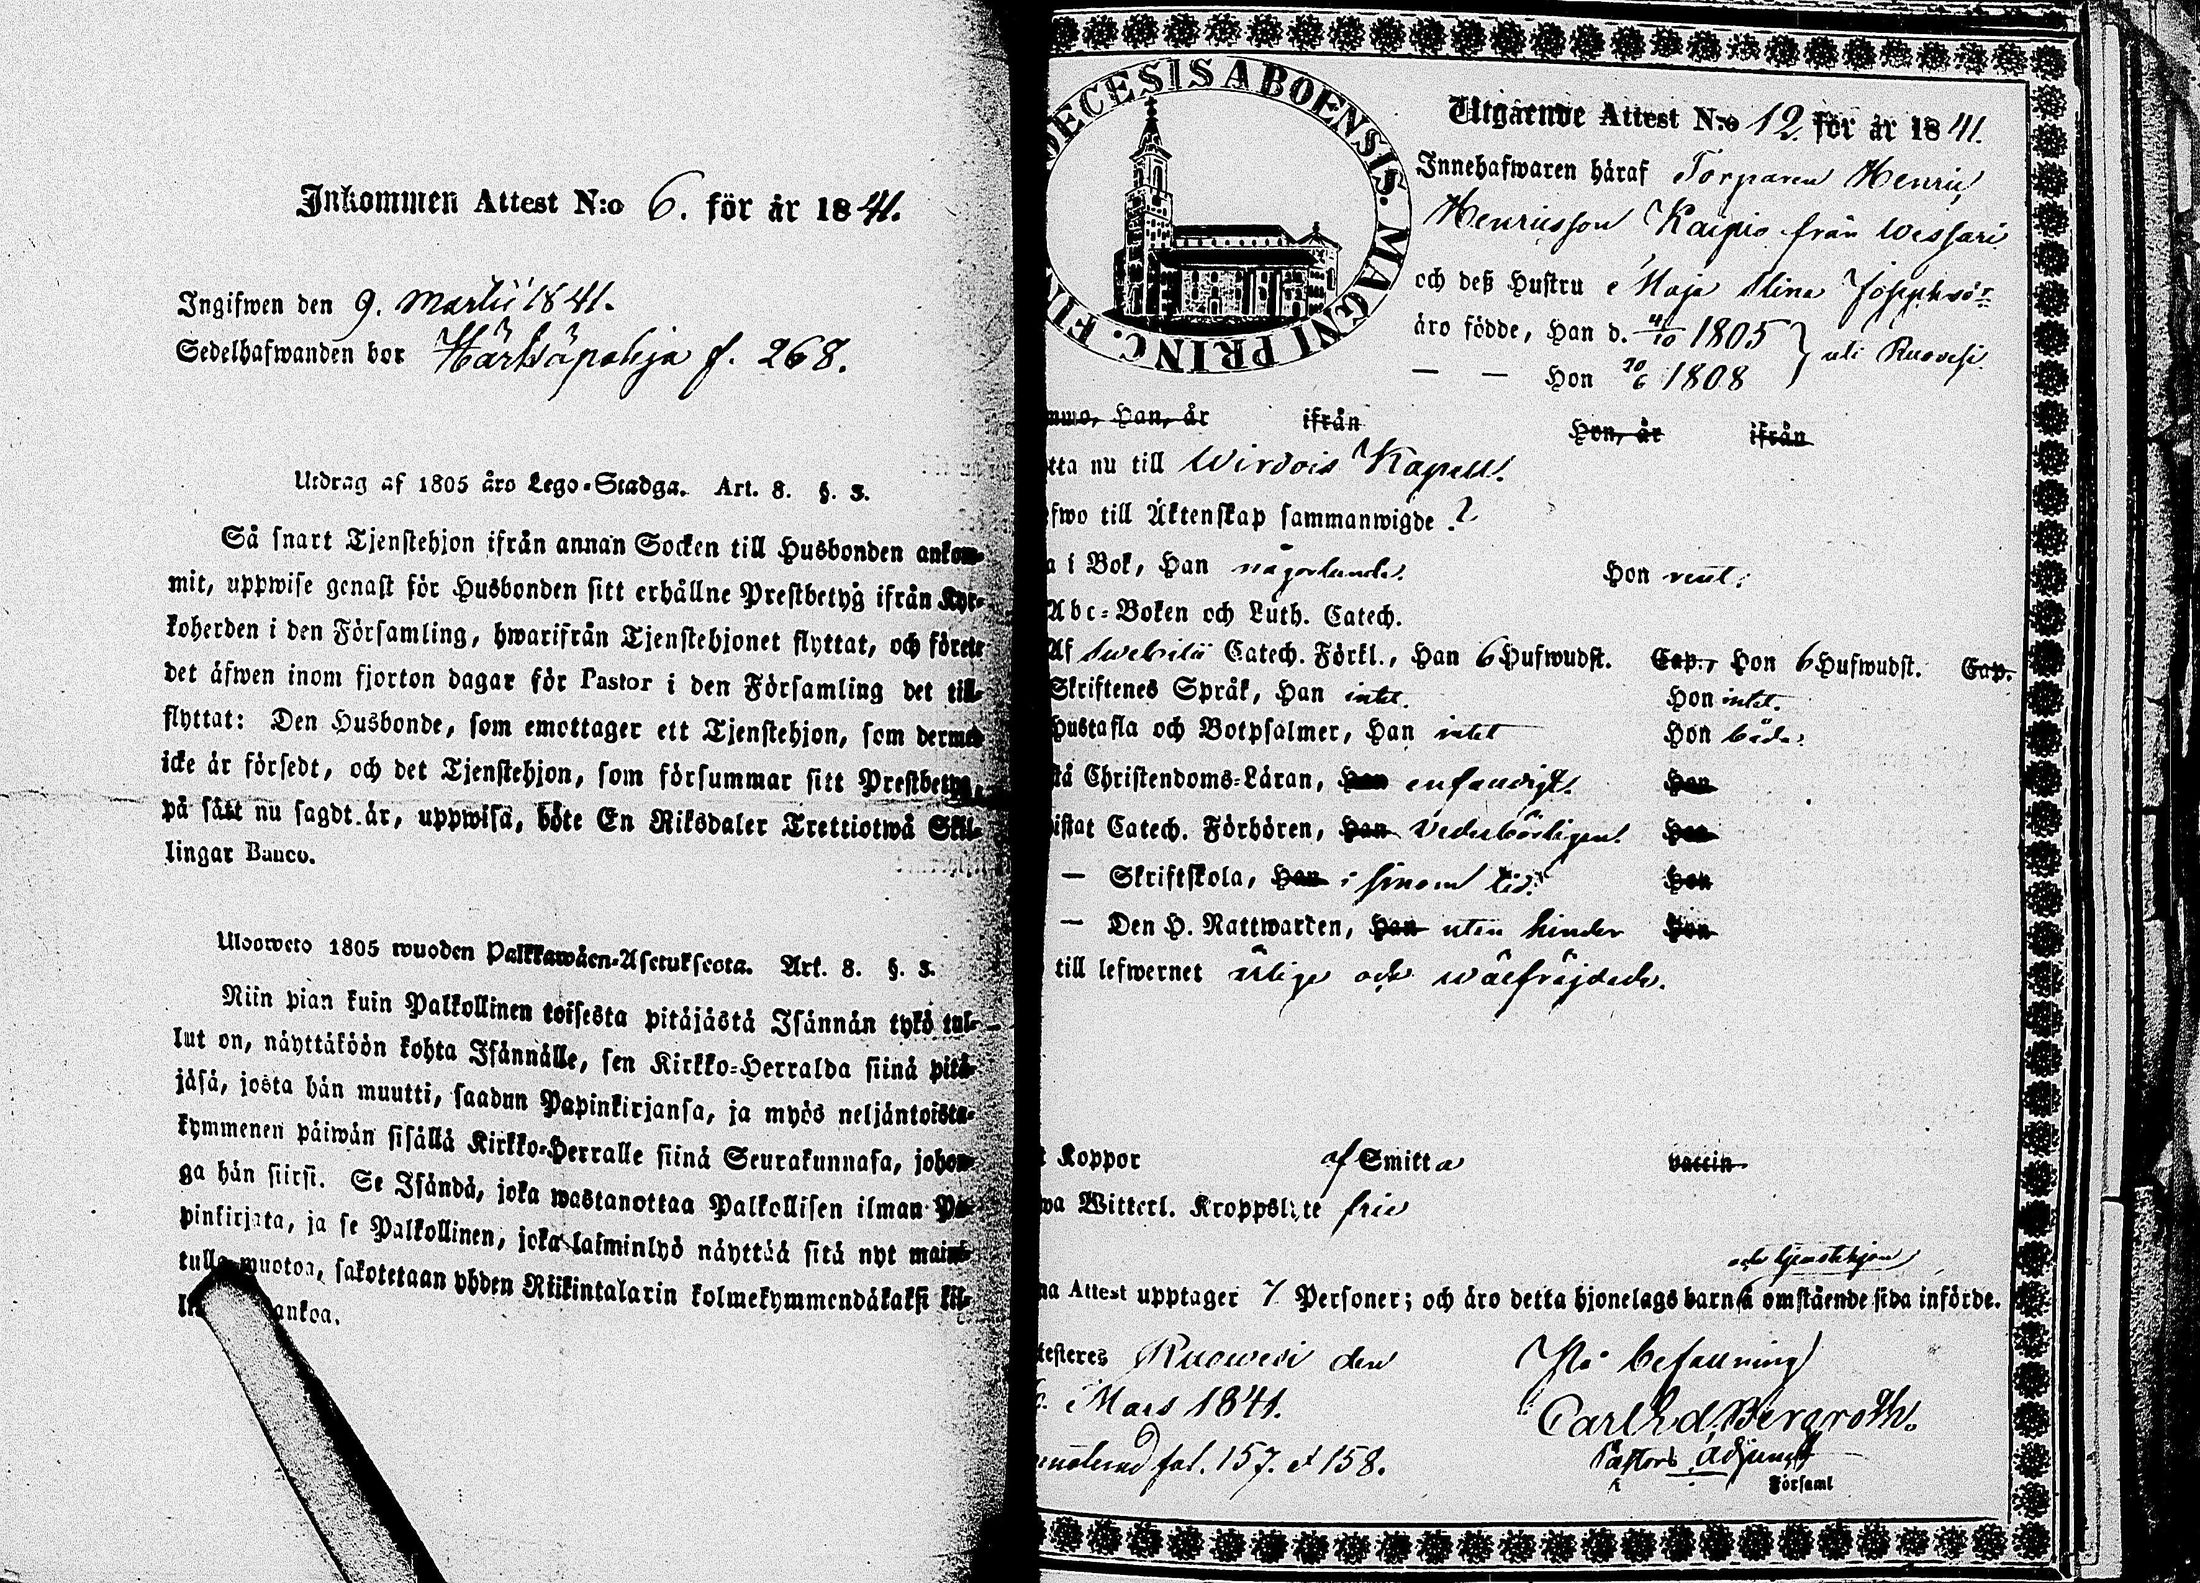 Inkommen Attest N:o 6. för år 1841.
Ingifwen den 9. Martii 1841.
Sedelhafwanden bor Härkäpohja f. 268.
Utdrag af 1805 åro Lego-Stadga. Art. 8. §. 3.
Så snart Tjenstehjon ifrån annan Socken till Husbonden ankom-
mit, uppwise genast för Husbonden sitt erhållne Prestbetyg ifrån Kyr-
koherden i den Församling, hwarifrån Tjenstehjonet flyttat, och förete
det äfwen inom fjorton dagar för Pastor i den Församling det till-
flyttat: Den Husbonde, som emottager ett Tjenstehjon, som dermed
icke är försedt, och det Tjenstehjon, som försummar sitt Prestbetyg,
på sätt nu sagdt är, uppwisa, böte En Riksdaler Trettiotwå Skil-
lingar Banco.
Uloowето 1805 wuoden Palkkawäen-Asetuksesta. Art. 8. §. 3.
Niin pian kuin Palkollinen toisesta pitäjästä Isännän tykö tul-
lut on, näyttäköön kohta Isännälle, sen Kirkko-Herralda siinä pitä-
jäsä, josta hän muutti, saadun Papinkirjansa, ja myös neljäntoista-
kymmenen päiwän sisällä Kirkko-Herralle siinä Seurakunnasa, johon-
ga hän siirsi. Se Isändä, joka wastanottaa Palkollisen ilman Pa-
pinkirjata, ja se Palkollinen, joka laiminlyö näyttää sitä nyt mainit-
tulla muotoa, sakotetaan yhden Riikintalarin kolmekymmendäkaksi kil-
ankoa.
DECESIS ABOENSIS. MAGNI PRINC. FI
Utgående Attest N:o 12 för år 1841.
Innehafwaren häraf Torparen Henric
Henricsson Kaipio från Wessari
och deß Hustru Maja Stina Josephsdr
äro födde, Han d. 4/10 1805 } uti Ruovesi.
— — Hon 20/6 1808
mmo, Han, år ifrån Hon, år ifrån
tta nu till Wirdois Kapell.
fwo till Äktenskap sammanwigde.
a i Bok, Han någorlunda. Hon rent.
Abc-Boken och Luth. Catech.
Af Swebilii Catech. Förkl., Han 6 Hufwudst. Cap., Hon 6 Hufwudst. Cap.
Skriftenes Språk, Han intet. Hon intet.
Hustafla och Botpsalmer, Han intet Hon båda.
stå Christendoms-Läran, Han enfaldigt. Hon
istat Catech. Förhören, Han Vederbörligen. Hon
— Skriftskola, Han i sinom tid. Hon
— Den H. Nattwarden, Han utan hinder Hon
till lefwernet ärlige och wälfräjdade.
t Koppor af Smitta vaccin
wa Witterl. Kroppslyte frie
och tjenstehjon
na Attest upptager 7 Personer; och äro detta hjonelags barn å omstående sida införde.
testeres Ruovesi den På befallning
6. Mars 1841. Carl Ed. Bergroth.
fol. 157. et 158. Pastors Adjunct
Församl